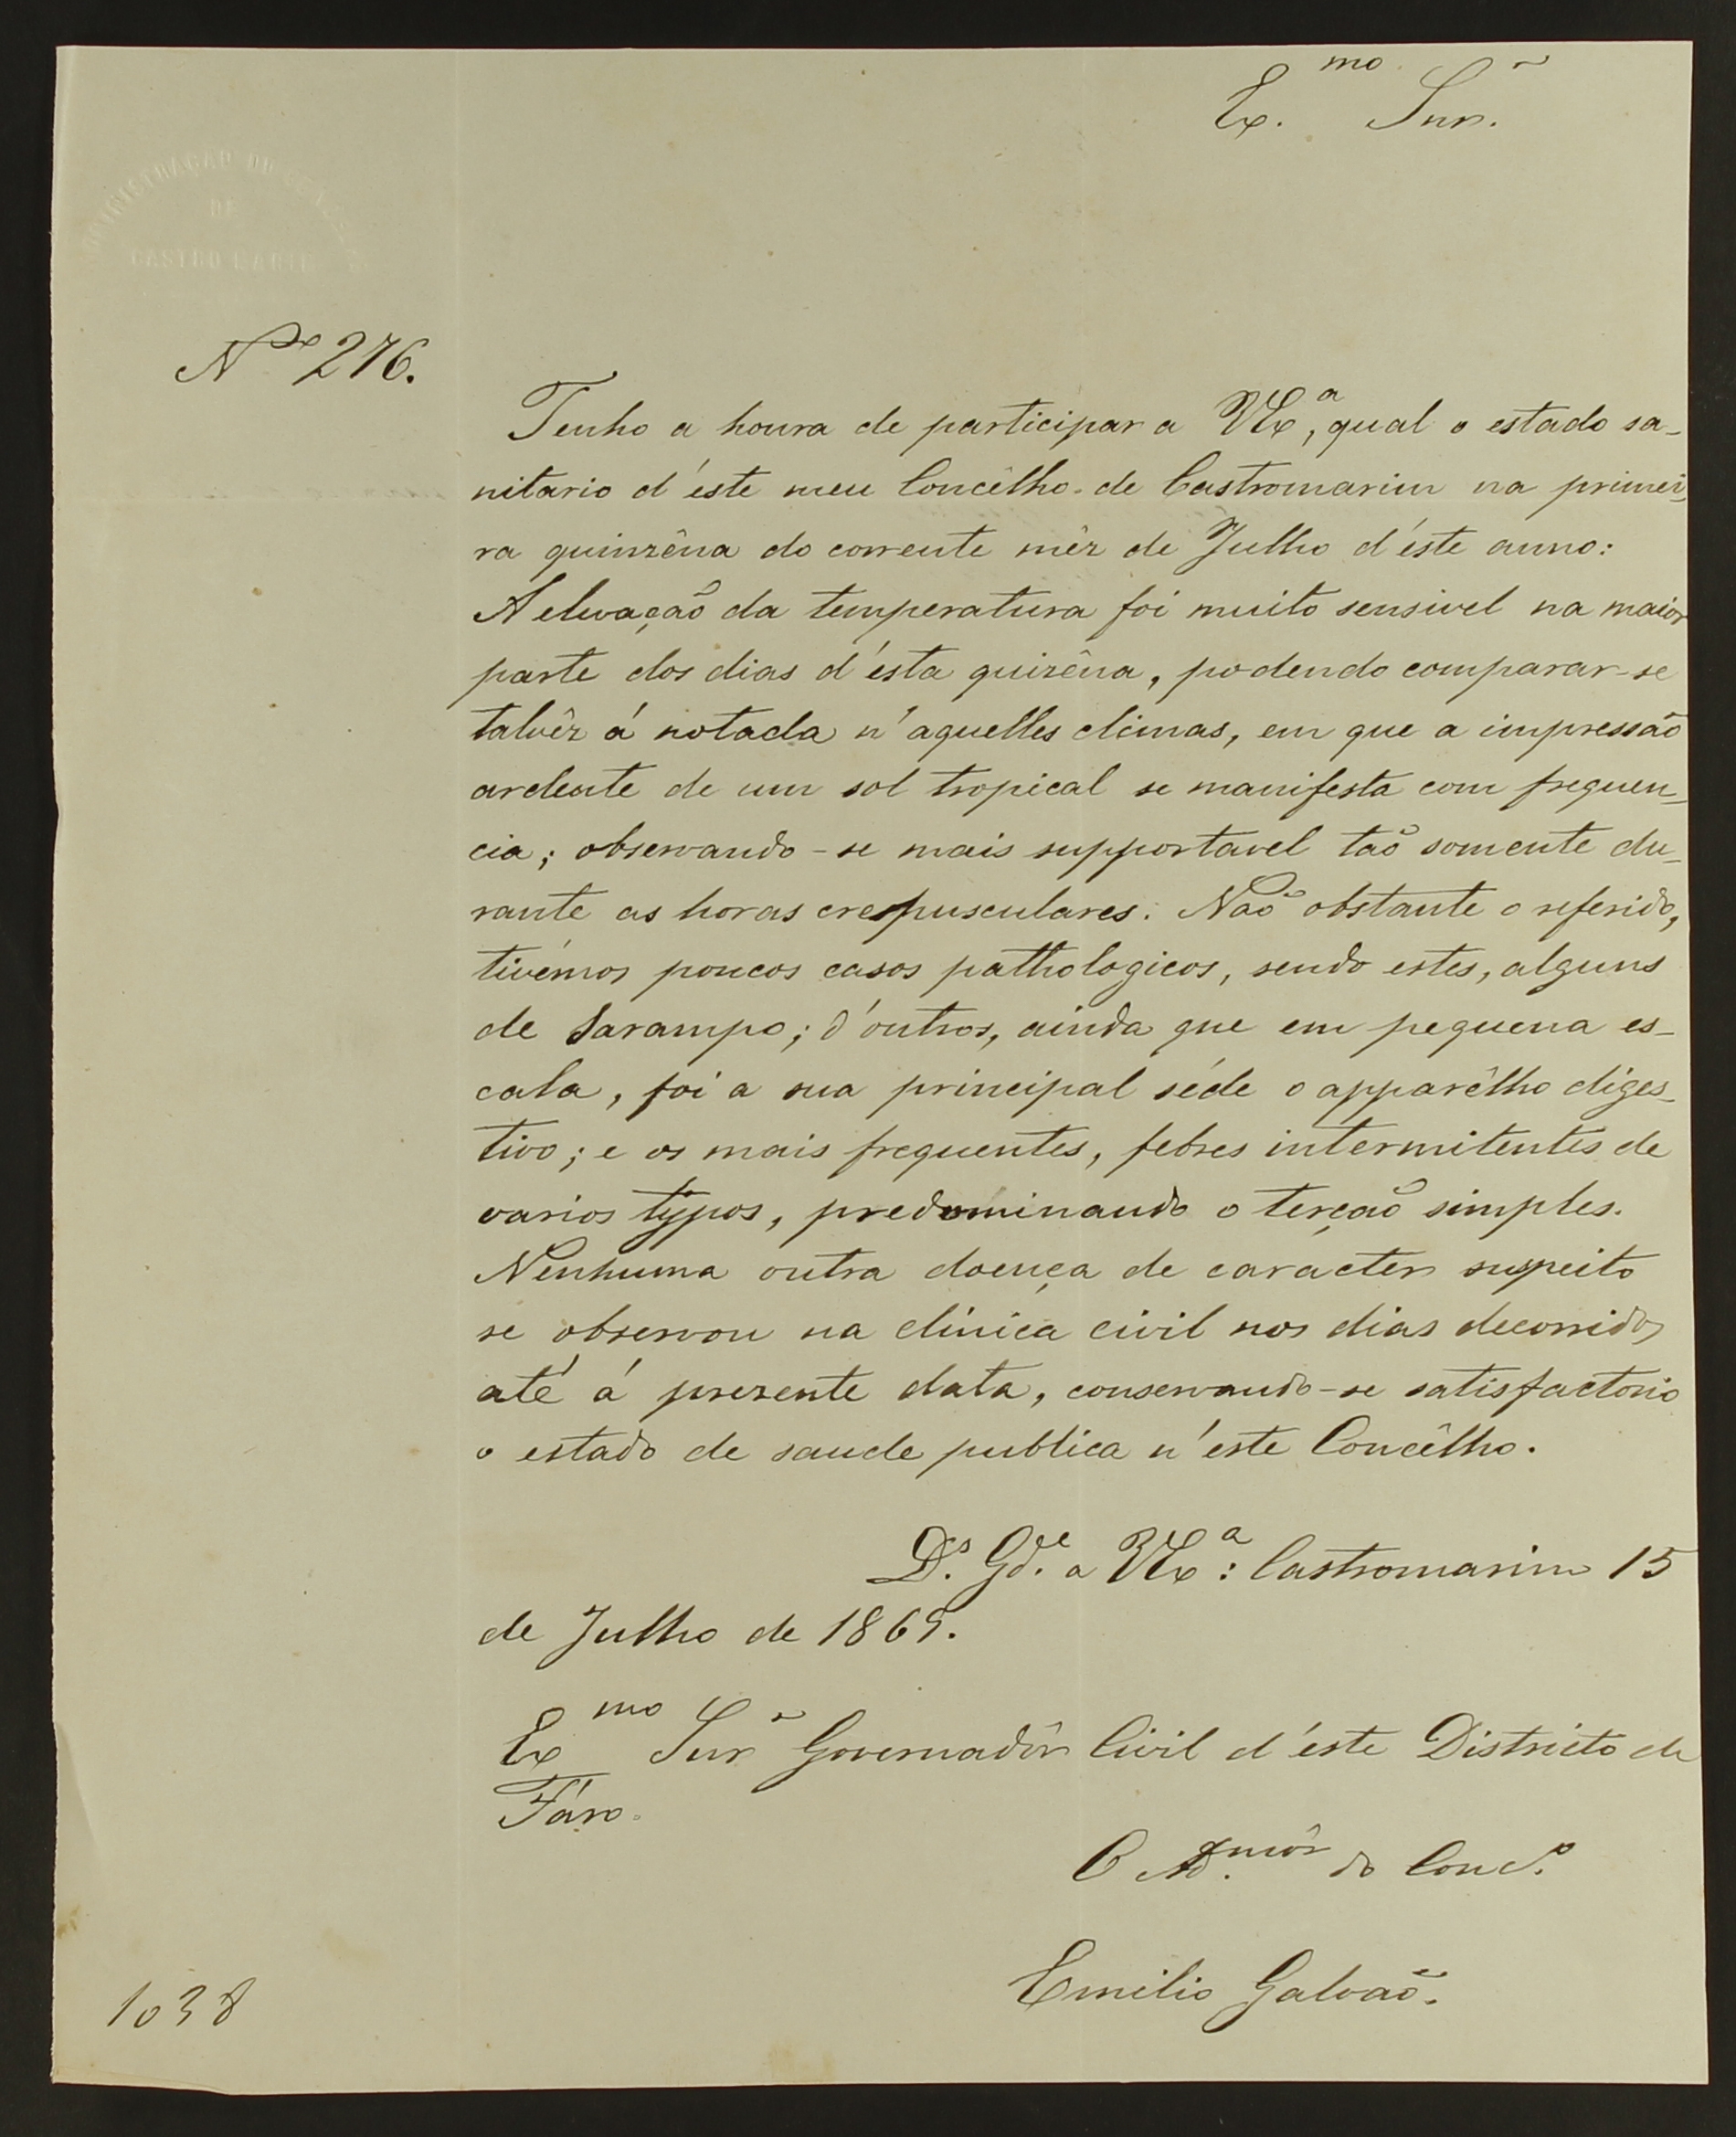 Ex.mo Snr.
ADMINISTRAÇÃO DO CONCELHO
DE
CASTRO MARIM
Nº 276.
Tenho a honra de participar a VExª, qual o estado sa-
nitario d'éste meu Concêlho de Castromarim na primei-
ra quinzêna do corrente mêz de Julho d'éste anno:
A elevação da temperatura foi muito sensivel na maior
parte dos dias d'ésta quizêna, podendo comparar-se
talvêz á notada n'aquelles climas, em que a impressão
ardente de um sol tropical se manifesta com frequen-
cia; observando-se mais supportavel tão somente du-
rante as horas crepusculares. Não obstante o referido,
tivémos poucos casos pathologicos, sendo estes, alguns
de Sarampo; d'outros, ainda que em pequena es-
cala, foi a sua principal séde o apparêlho diges-
tivo; e os mais frequentes, febres intermitentes de
varios typos, predominando o terção simples.
Nenhuma outra doença de caracter suspeito
se observou na clínica civil nos dias decorridos
até á prezente data, conservando-se satisfactorio
o estado de saude publica n'este Concêlho.
D.s G.de a VExª: Castromarim 15
de Julho de 1869.
Exmo Snr Governadôr Civil d'éste Districto de
Fáro.
O Ad.môr do Conc.º
Emilio Galvão.
1038